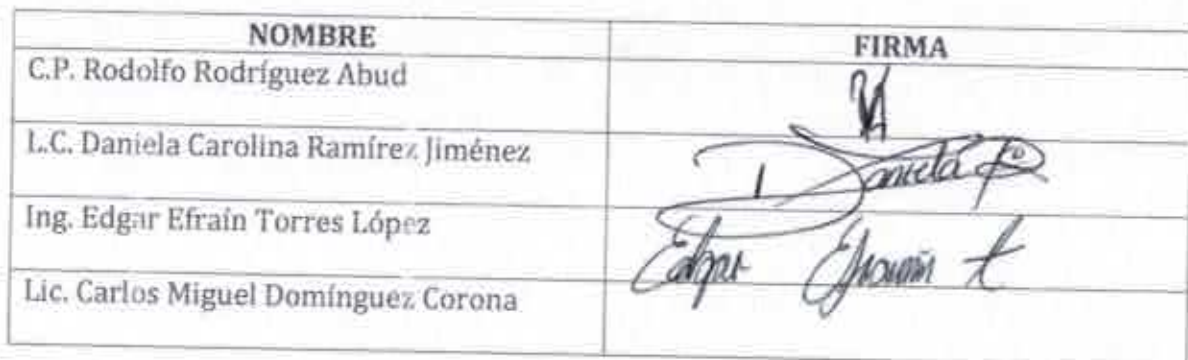 NOMBRE FIRMA
C.P. Rodolfo Rodríguez Abud
L.C. Daniela Carolina Ramírez Jiménez
Daniela
Ing. Edgar Efraín Torres López
Edgar Efraín t
Lic. Carlos Miguel Domínguez Corona